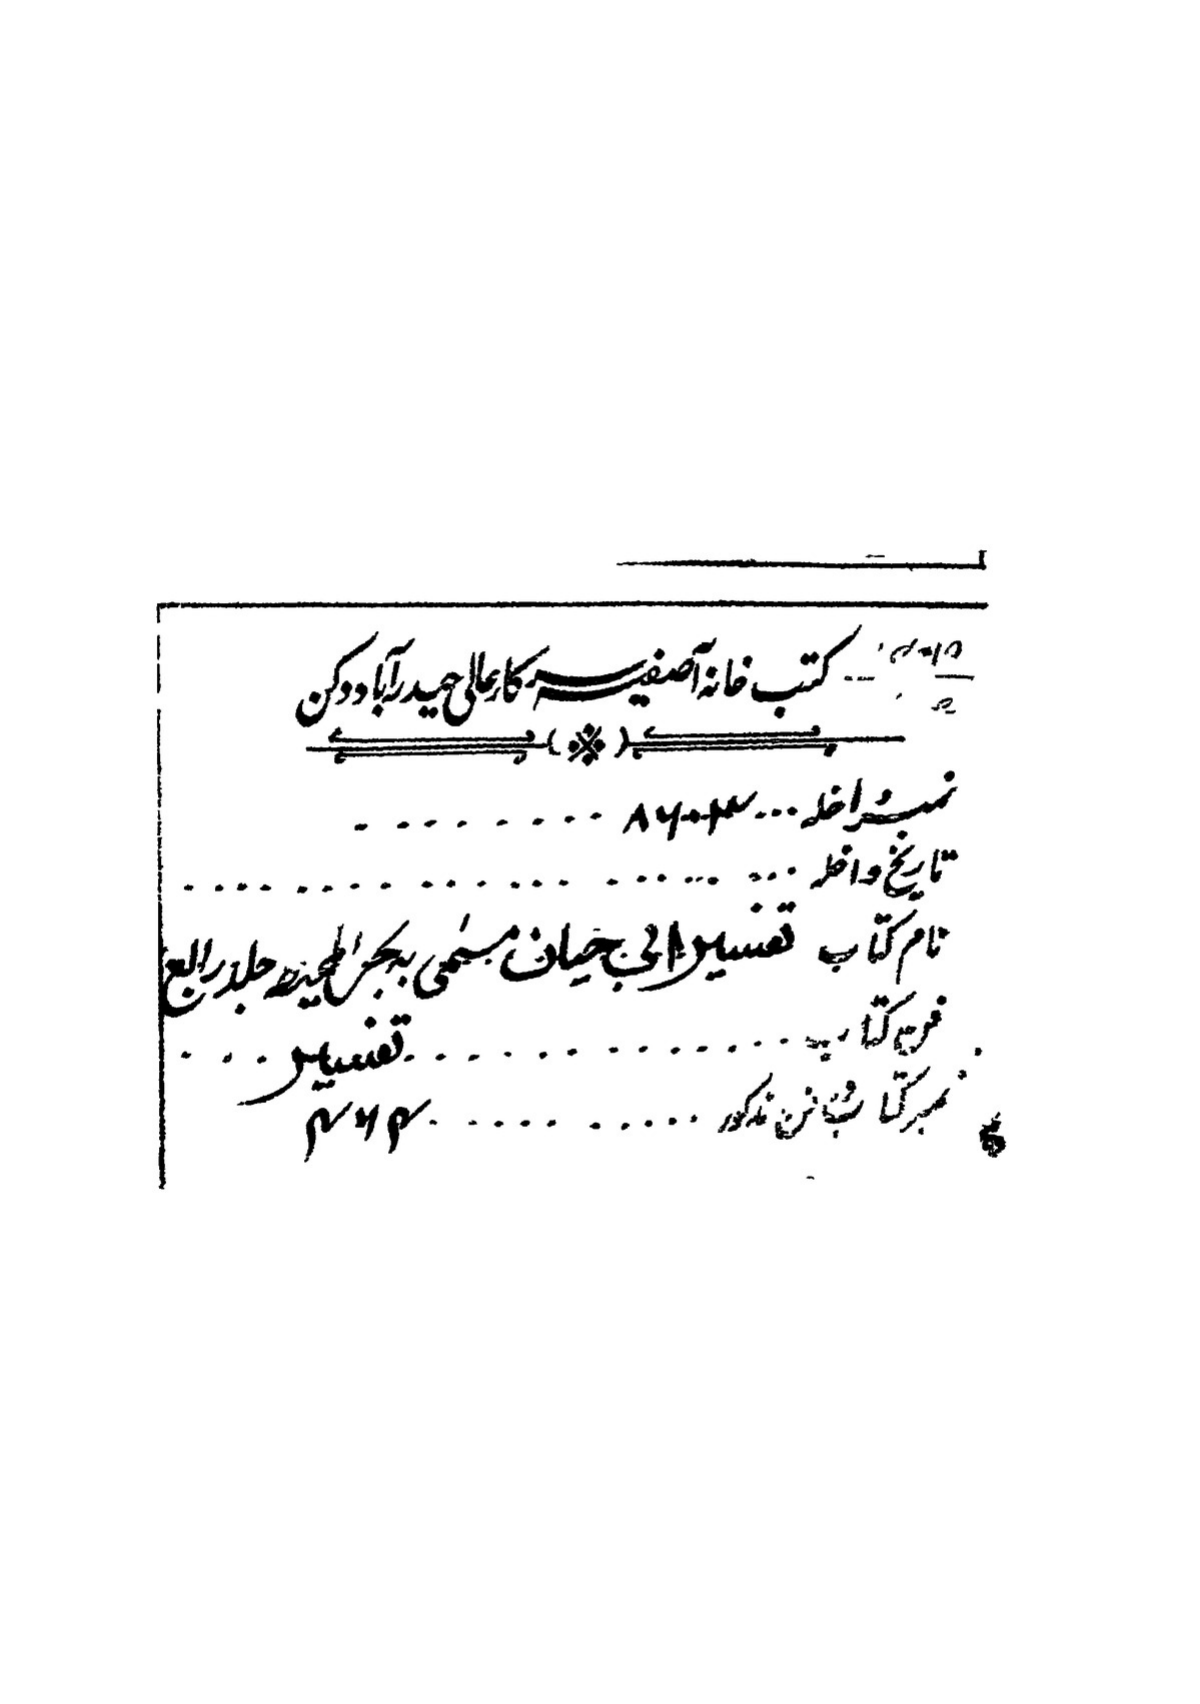 کتب خانہ آصفیہ سرکار عالی حیدرآباد دکن
نمبر داخلہ ... ۸۶۰۰۳ ........
تاریخ داخلہ ........................
نام کتاب تفسیر ابی حیان مسمٰی بہ بحر المحیط جلد رابع
فن کتاب .............. تفسیر ...
نمبر کتاب فن مذکور ..........